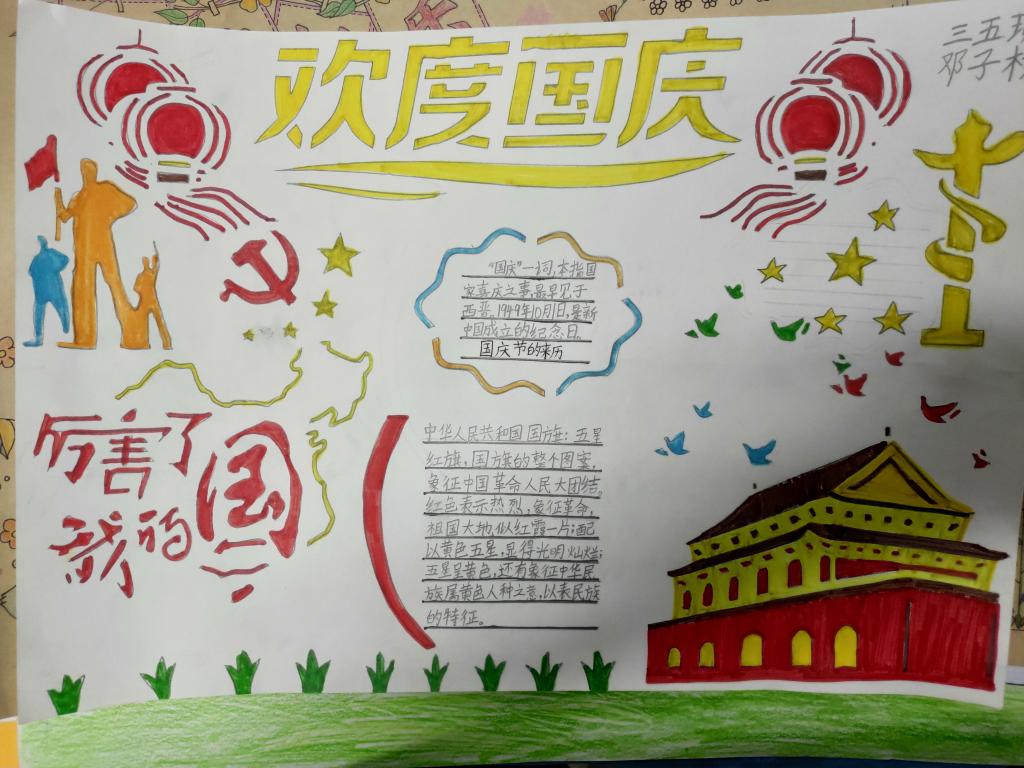 欢度国庆
三五班
邓子
"国庆"一词,本指国
家喜庆之事,最早见于
西晋,1949年10月1日,是新
中国成立的纪念日。
国庆节的来历
厉害了
我的
国
中华人民共和国国旗:五星
红旗,国旗的整个图案,
象征中国革命人民大团结。
红色表示热烈,象征革命,
祖国大地似红霞一片;配
以黄色五星,显得光明灿烂;
五星呈黄色,还有象征中华民
族属黄色人种之意,以表民族
的特征。